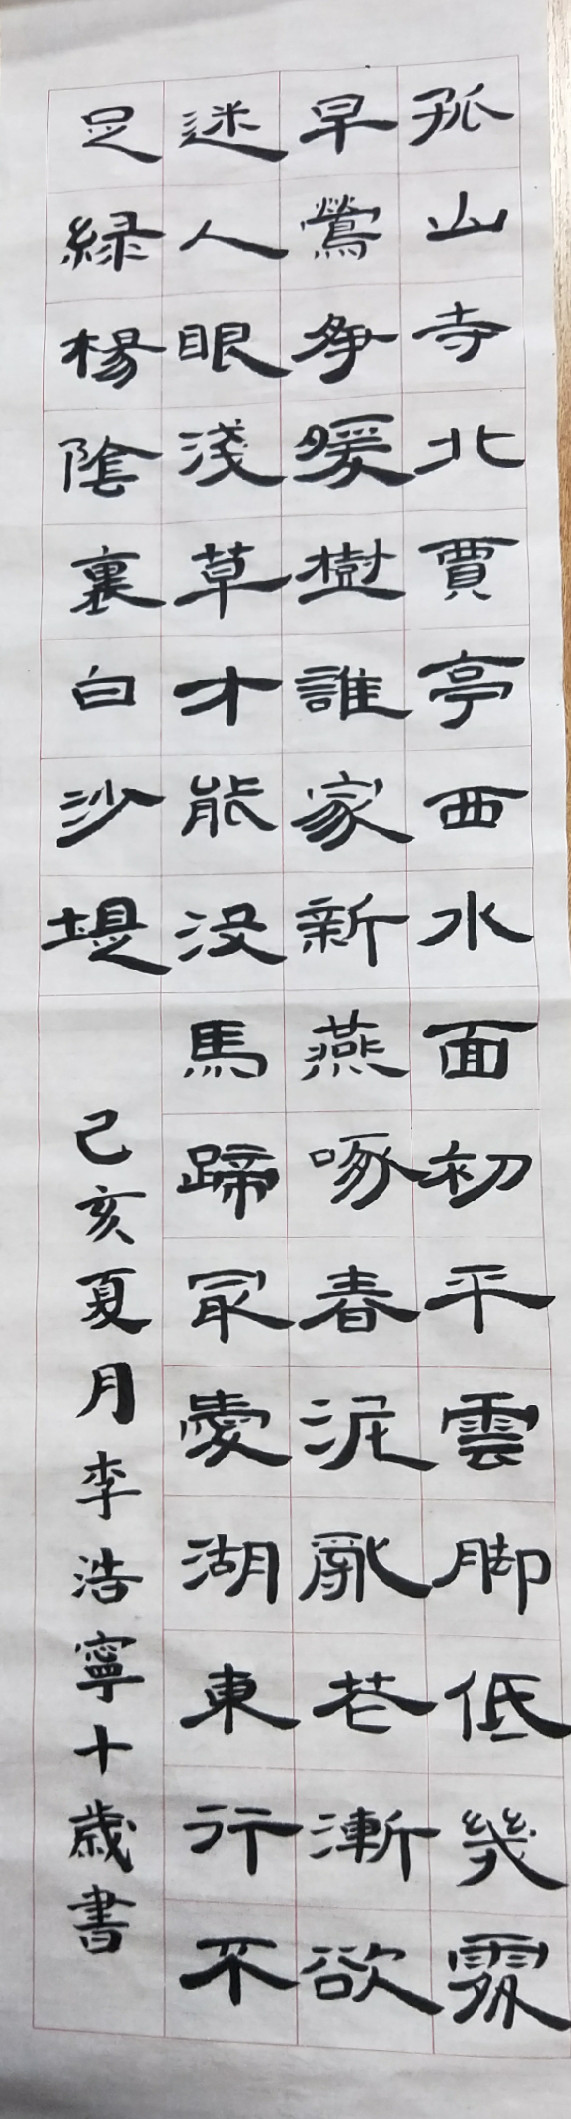 孤山寺北賈亭西水面初平雲脚低幾處
早鶯爭暖樹誰家新燕啄春泥亂花漸欲
迷人眼淺草才能沒馬蹄最愛湖東行不
足綠楊陰裏白沙堤
己亥夏月李浩寧十歲書